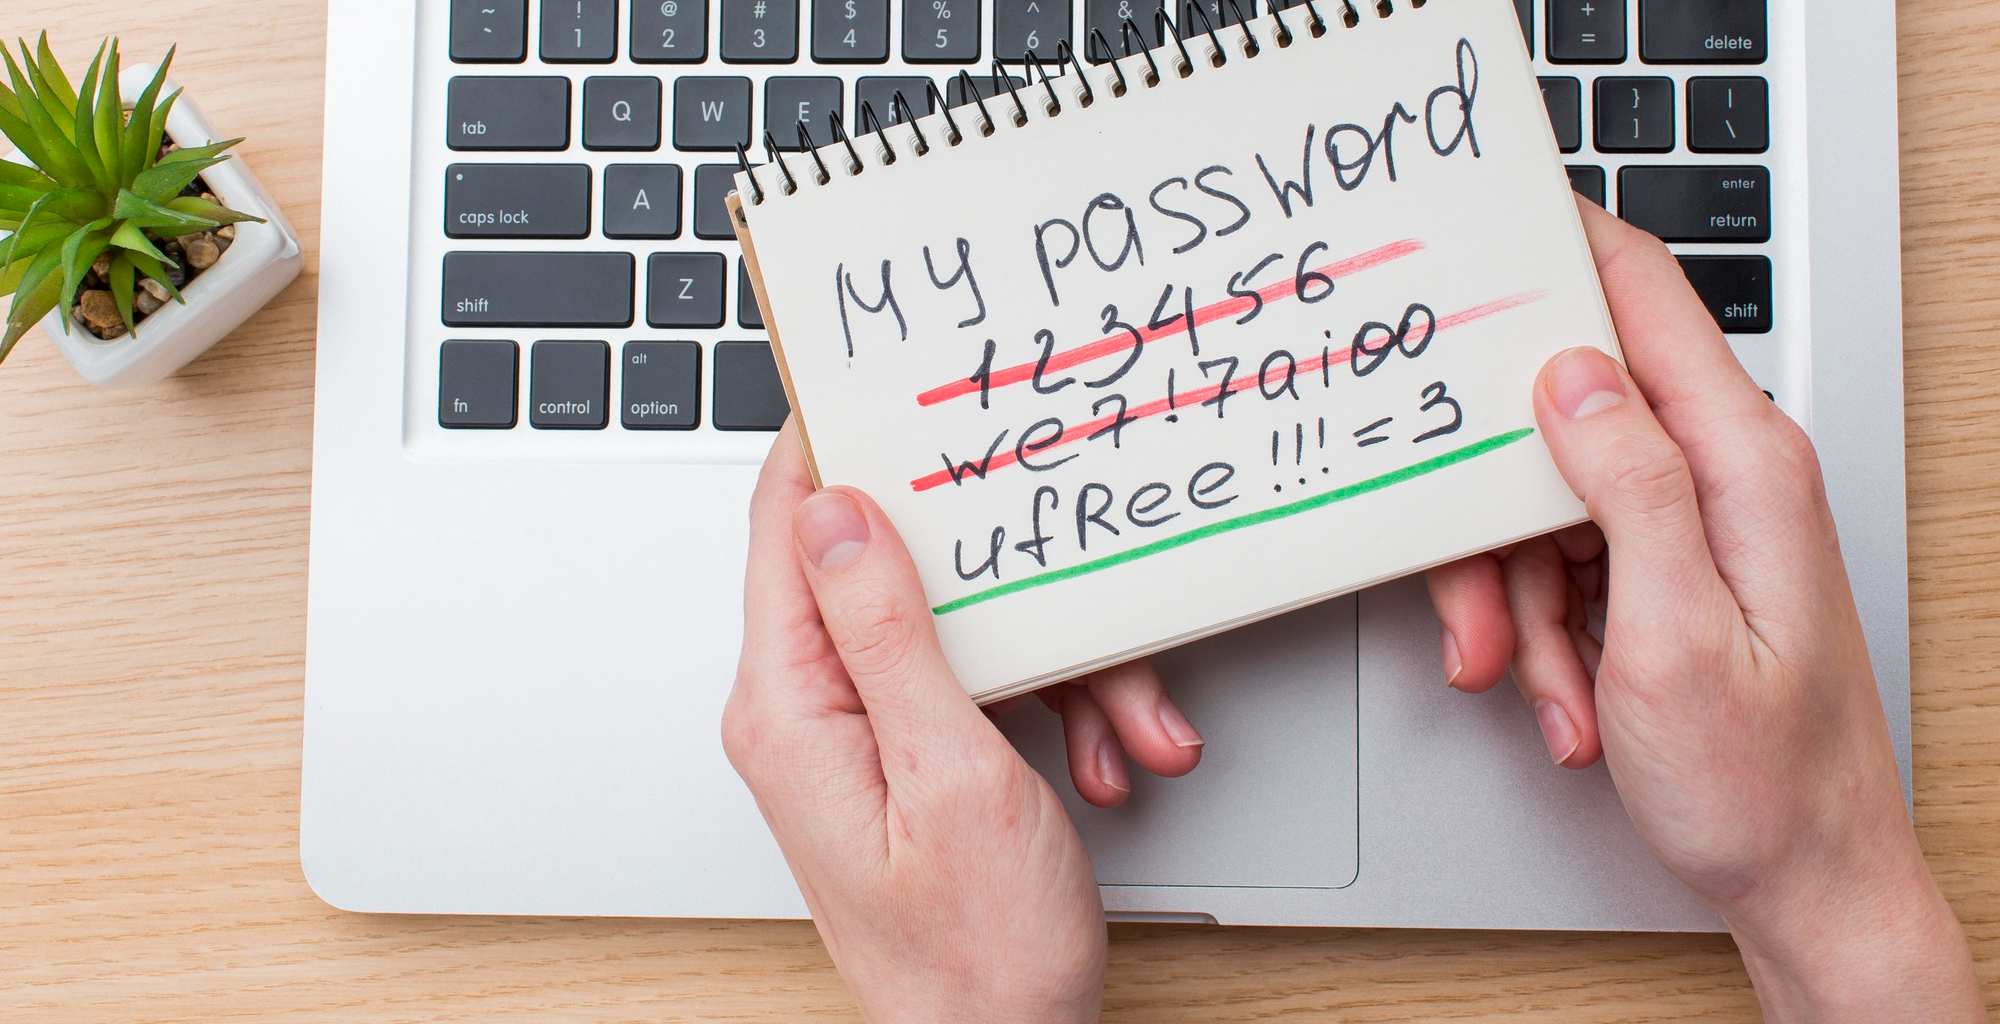 ~ ` ! 1 @ 2 # 3 $ 4 % 5 ^ 6 & * + = delete
tab Q W E R } ] | \
caps lock A enter return
shift Z shift
fn control alt option
My password
123456
we7!7aioo
ufRee!!!=3